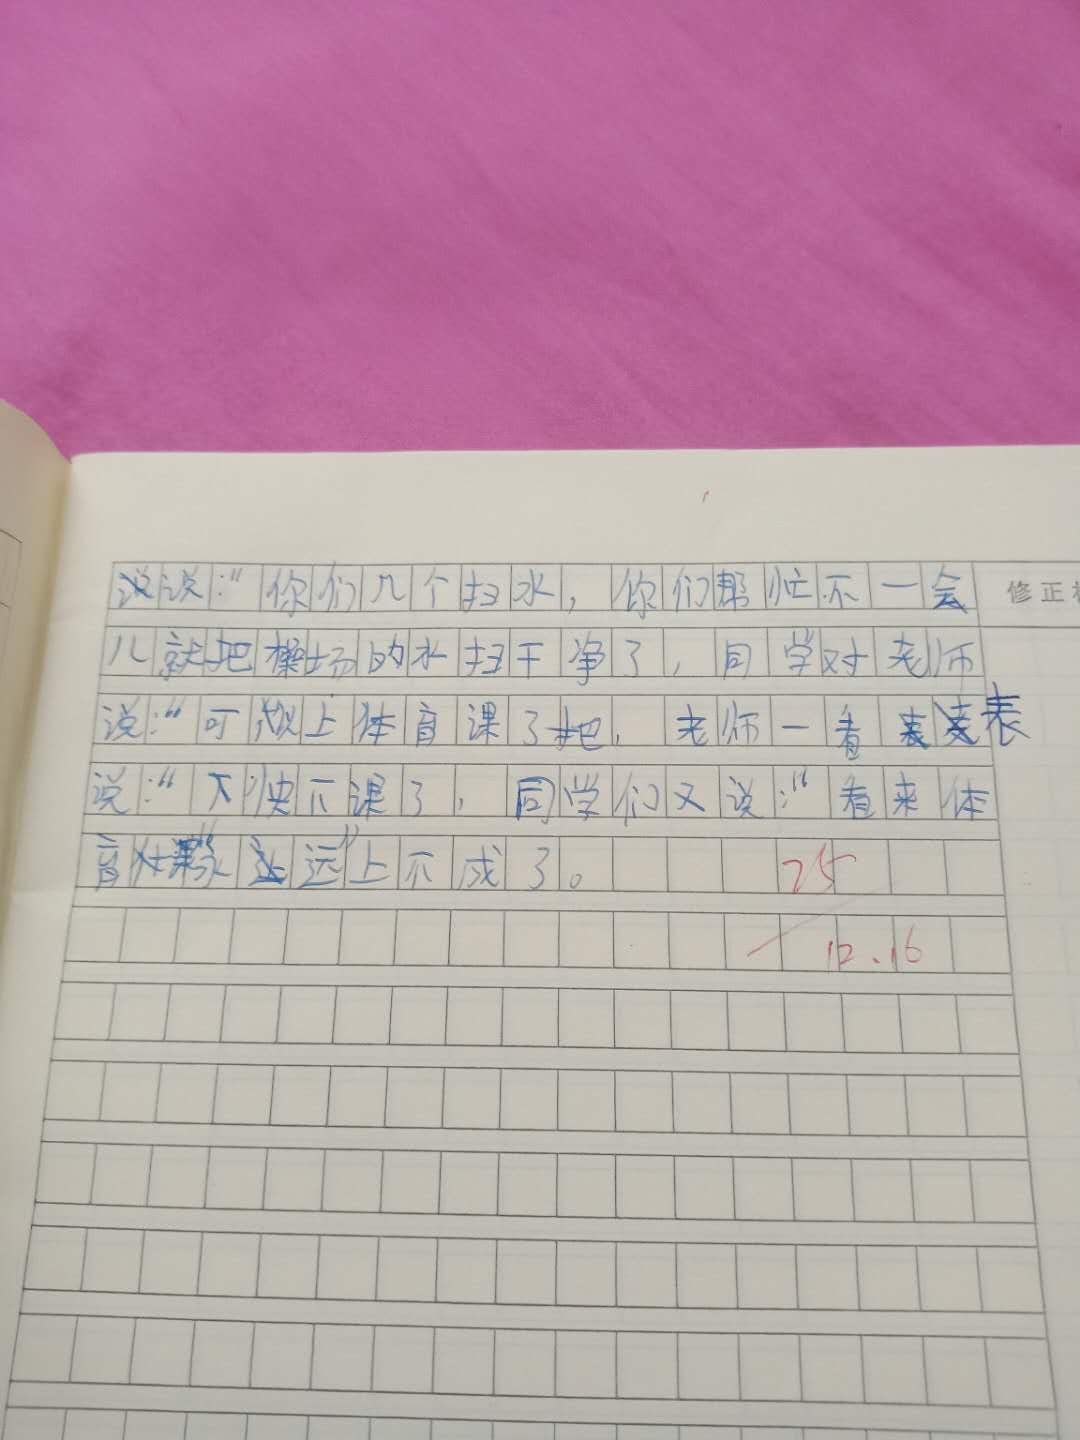 说:“你们几个扫水,你们帮忙不一会
修正
儿就把操场的水扫干净了,同学对老师
说:“可以上体育课了把,老师一看表
说:“下快下课了,同学们又说:“看来体
育课“永远”上不成了。
25
12.16